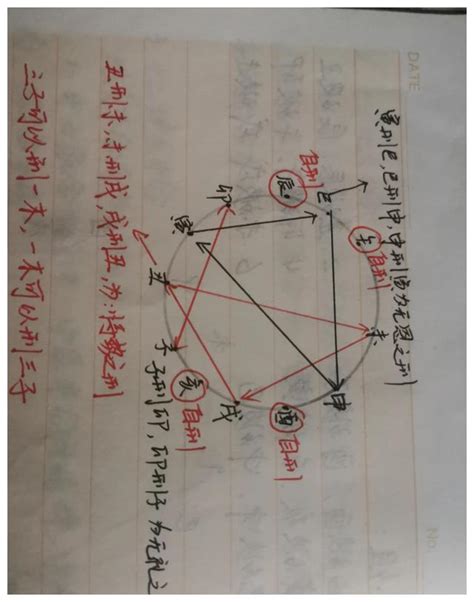 DATE
No.
寅刑巳,巳刑申,申刑寅为无恩之刑
巳
午 自刑
未
申
自刑
辰
卯
寅
丑
子
亥 自刑
戌
酉 自刑
子刑卯,卯刑子 为无礼之
丑刑未,未刑戌,戌刑丑,为:恃势之刑
三子可以刑一木,一木可以刑三子